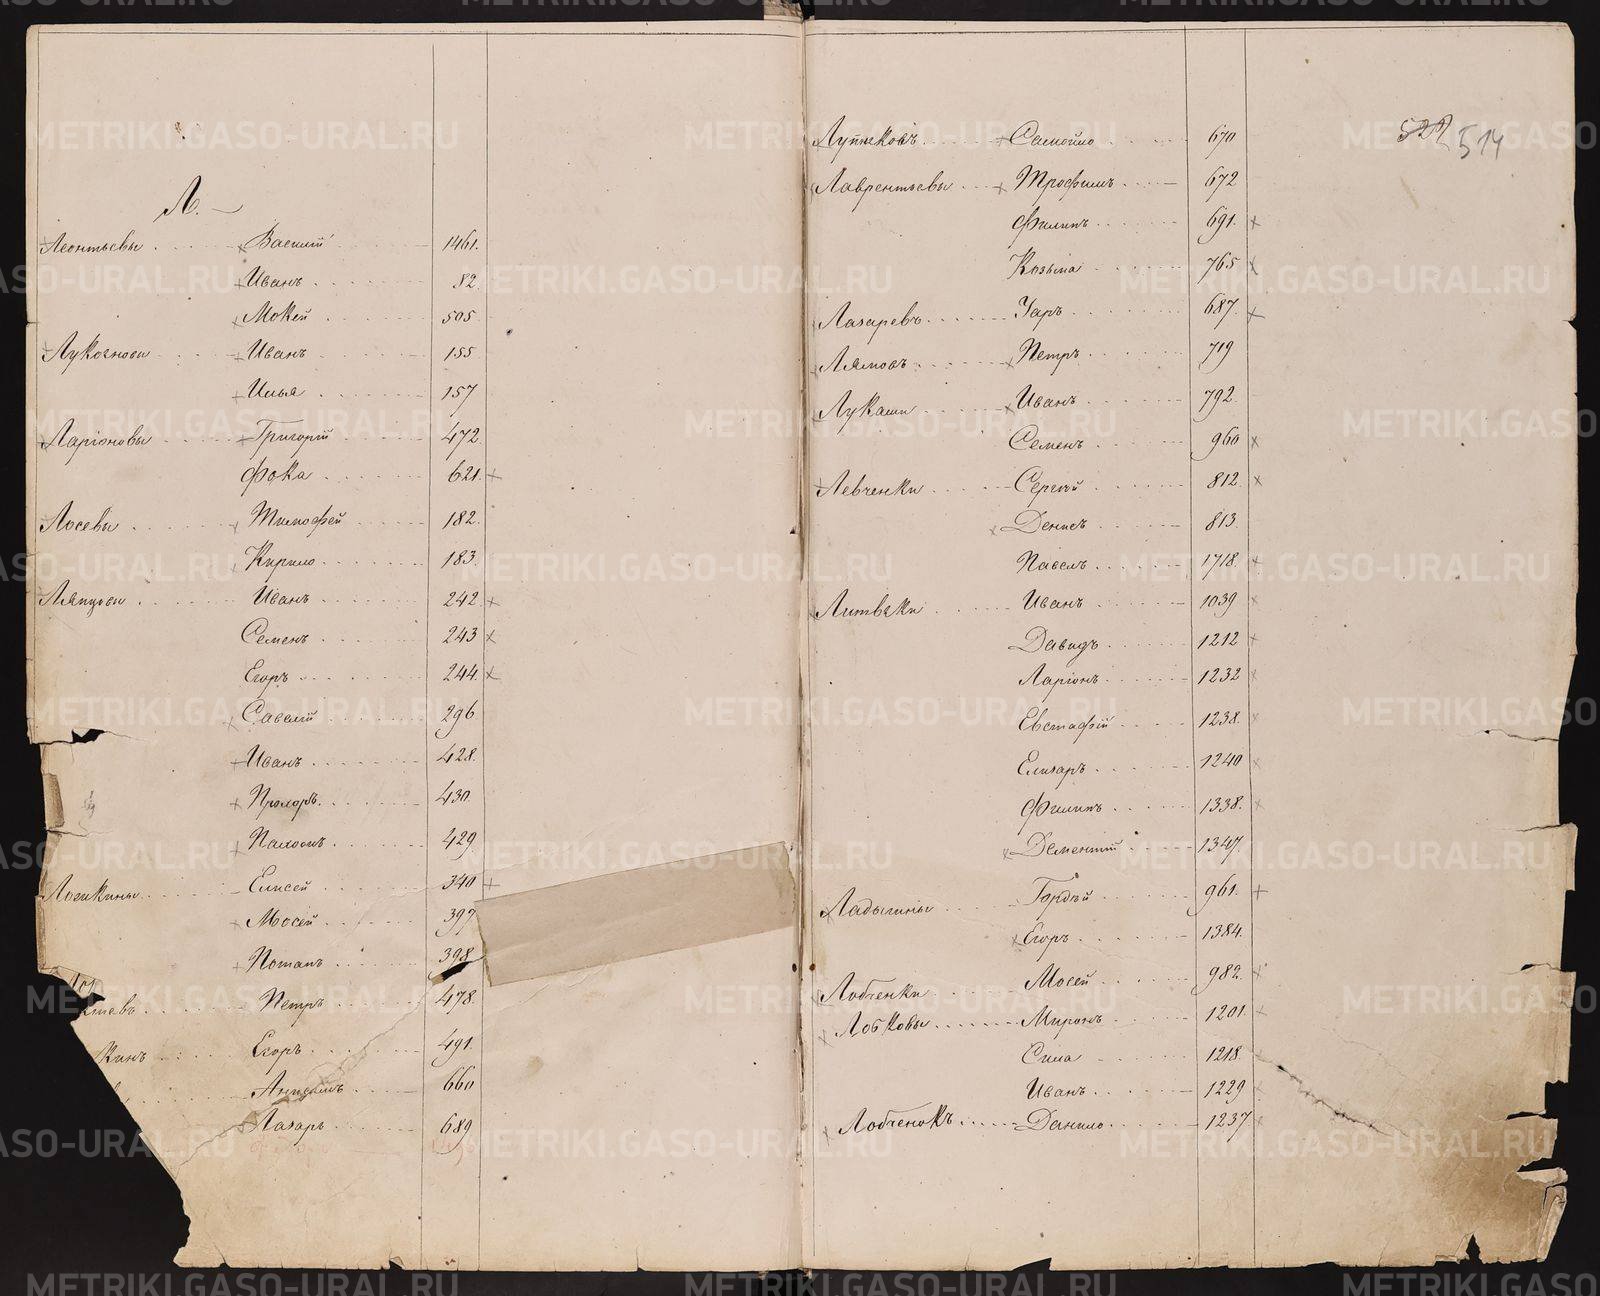 Л.
Леонтьевы Василий 1461.
Иванъ 82.
Мокей 505
Лукочковы Иванъ 155
Илья 157
Ларіоновы Григорій 472.
Фока 621.
Лосевы Тимофей 182.
Кирило 183.
Ляпцовы Иванъ 242.
Семенъ 243
Егоръ 244.
Савелій 296
Иванъ 428.
Прохоръ 430.
Пахомъ 429
Логикины Елисей 340
Мосей 397
Потапъ 398
Петръ 478.
кинъ Егоръ 491.
660
Лазарь 689
522 514
Самойло 670
Лаврентьевы Трофимъ 672
Филипъ 691.
Козьма 765
Лазаревъ Уаръ 687.
Лямовъ Петръ 719
Лукаши Иванъ 792.
Семенъ 960
Левченки Сергѣй 812.
Денисъ 813.
Павелъ 1718.
Литвяки Иванъ 1039
Давидъ 1212
Ларіонъ 1232
Евстафій 1238.
Елизаръ 1240
Филипъ 1338.
Дементій 1347
Ладыгины Гордѣй 961.
Егоръ 1384.
Лобченки Мосей 982.
Лобковы Миронъ 1201.
Сила 1218.
Иванъ 1229
Лобченокъ Данило 1237
METRIKI.GASO-URAL.RU